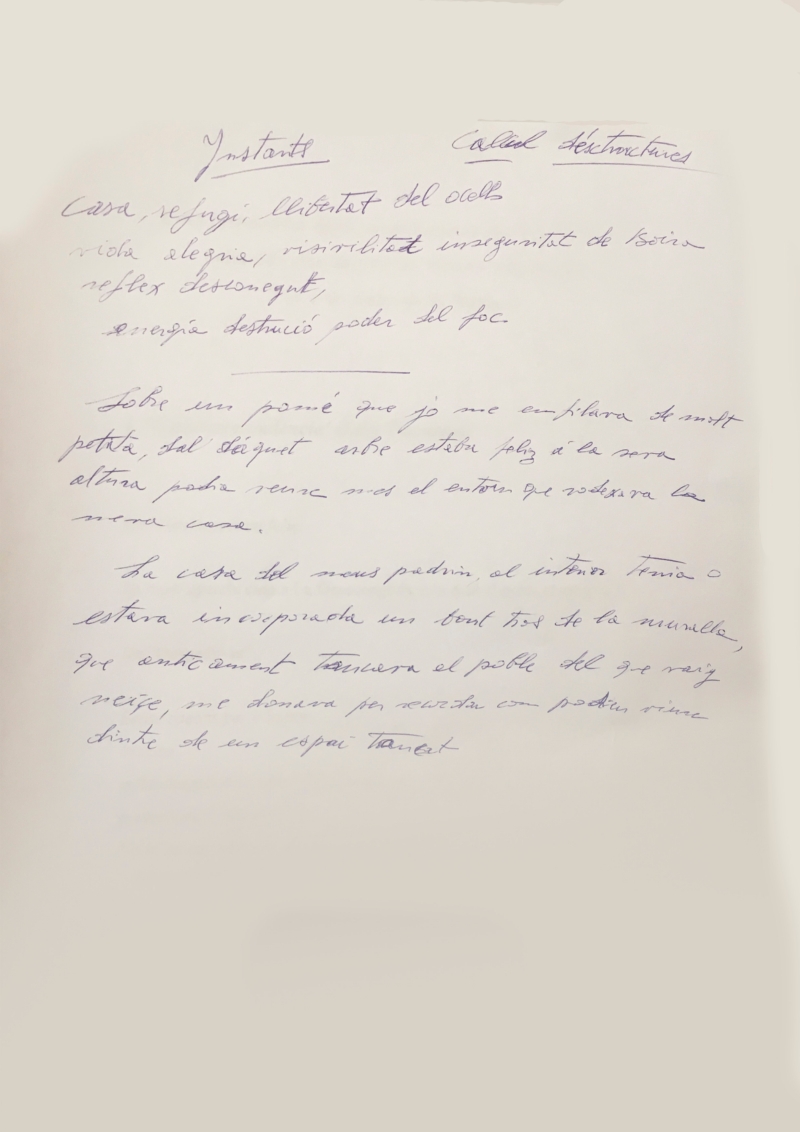 Ynstants
d'estructures
Casa, refugi, llibertat del ocells
vida alegria, visivilitat inseguritat de boira
reflex desconegut,
energía destrució poder del foc.
Sobre un pomé que jo me enfilava de molt
petita, dal d'aquet arbre estaba feliz á la seva
altura podia veure mes el entorn que rodexava la
meva casa.
La casa del meus padrin, al interior tenia o
estava incorporada un bont tros de la muralla,
que anticament tancava el poble del que vaig
neixe, me donava per recordar com podien viure
dintre de un espai tancat